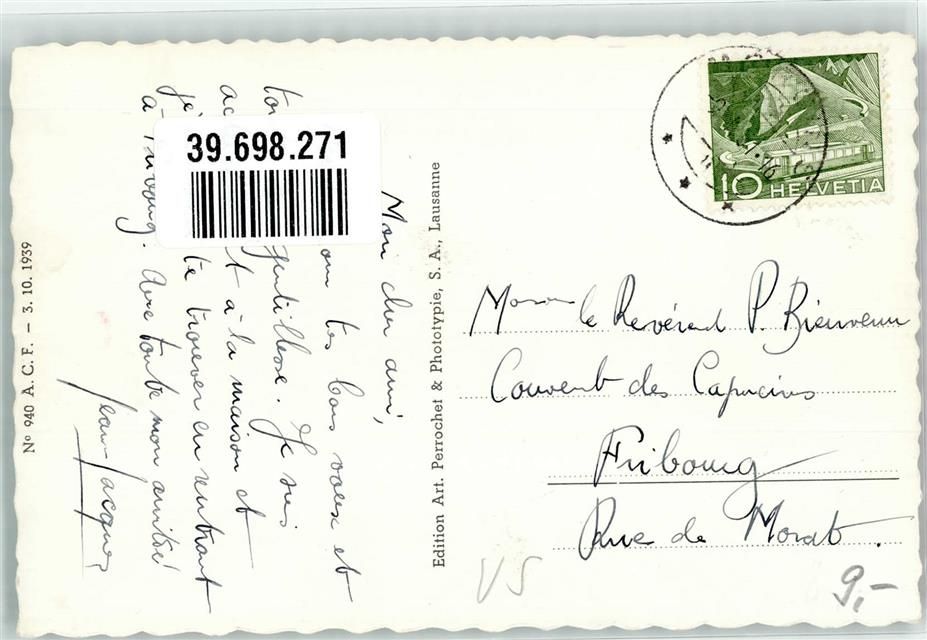 Mon cher ami,
tes bons voeux et
gentillesse. Je suis
à la maison et
te trouver en rentrant
à Fribourg. Avec toute mon amitié
Jean-Jacques
39.698.271
Nº 940 A. C. F. — 3. 10. 1939
Edition Art. Perrochet & Phototypie, S. A., Lausanne
10 HELVETIA
le Révérend P. Bienvenu
Couvent des Capucins
Fribourg
Rue de Morat.
VS
9,-